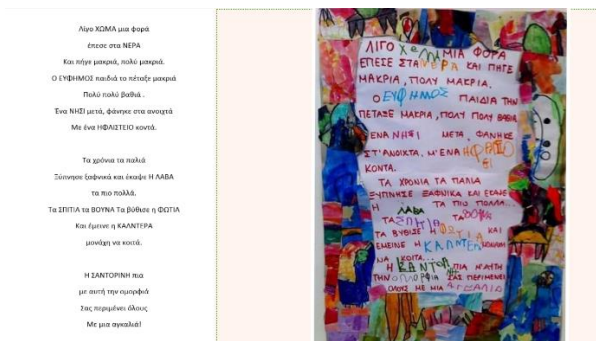 Λίγο ΧΩΜΑ μια φορά
έπεσε στα ΝΕΡΑ
Και πήγε μακριά, πολύ μακριά.
Ο ΕΥΦΗΜΟΣ παιδιά το πέταξε μακριά
Πολύ πολύ βαθιά .
Ένα ΝΗΣΙ μετά, φάνηκε στα ανοιχτά
Με ένα ΗΦΑΙΣΤΕΙΟ κοντά.
Τα χρόνια τα παλιά
Ξύπνησε ξαφνικά και έκαψε Η ΛΑΒΑ
τα πιο πολλά.
Τα ΣΠΙΤΙΑ τα ΒΟΥΝΑ Τα βύθισε η ΦΩΤΙΑ
Και έμεινε η ΚΑΛΝΤΕΡΑ
μονάχη να κοιτά.
Η ΣΑΝΤΟΡΙΝΗ πια
με αυτή την ομορφιά
Σας περιμένει όλους
Με μια αγκαλιά!
ΛΙΓΟ ΜΙΑ ΦΟΡΑ
ΕΠΕΣΕ ΣΤΑ ΝΕΡΑ ΚΑΙ ΠΗΓΕ
ΜΑΚΡΙΑ, ΠΟΛΥ ΜΑΚΡΙΑ.
Ο ΕΥΦΗΜΟΣ ΠΑΙΔΙΑ ΤΗΝ
ΠΕΤΑΞΕ ΜΑΚΡΙΑ, ΠΟΛΥ ΠΟΛΥ ΒΑΘΙΑ
ΕΝΑ ΝΗΣΙ ΜΕΤΑ, ΦΑΝΗΚΕ
ΣΤ'ΑΝΟΙΚΤΑ, Μ'ΕΝΑ
ΚΟΝΤΑ.
ΤΑ ΧΡΟΝΙΑ ΤΑ ΠΑΛΙΑ
ΞΥΠΝΗΣΕ ΞΑΦΝΙΚΑ ΚΑΙ ΕΚΑΨΕ
Η ΛΑΒΑ ΤΑ ΠΙΟ ΠΟΛΛΑ.
ΤΑ ΤΑ
ΤΑ ΒΥΘΙΣΕ Η ΦΩΤΙΑ ΚΑΙ
ΕΜΕΙΝΕ Η
ΝΑ ΚΟΙΤΑ.
Η ΠΙΑ Μ'ΑΥΤΗ
ΤΗΝ ΣΑΣ ΠΕΡΙΜΕΝΕΙ
ΟΛΟΥΣ ΜΕ ΜΙΑ